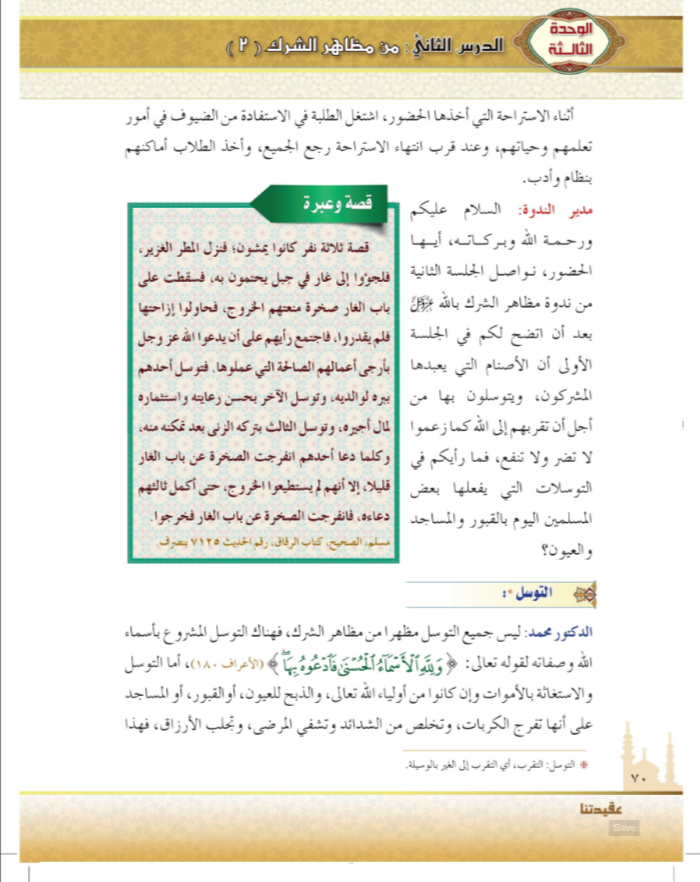 الوحدة
الثالثة
الدرس الثاني: من مظاهر الشرك ( ٢ )
أثناء الاستراحة التي أخذها الحضور، اشتغل الطلبة في الاستفادة من الضيوف في أمور
تعلمهم وحياتهم، وعند قرب انتهاء الاستراحة رجع الجميع، وأخذ الطلاب أماكنهم
بنظام وأدب.
مدير الندوة: السلام عليكم
ورحمة الله وبركاته، أيها
الحضور، نواصل الجلسة الثانية
من ندوة مظاهر الشرك بالله ﷿
بعد أن اتضح لكم في الجلسة
الأولى أن الأصنام التي يعبدها
المشركون، ويتوسلون بها من
أجل أن تقربهم إلى الله كما زعموا
لا تضر ولا تنفع، فما رأيكم في
التوسلات التي يفعلها بعض
المسلمين اليوم بالقبور والمساجد
والعيون؟
قصة وعبرة
قصة ثلاثة نفر كانوا يمشون؛ فنزل المطر الغزير،
فلجؤوا إلى غار في جبل يحتمون به، فسقطت على
باب الغار صخرة منعتهم الخروج، فحاولوا إزاحتها
فلم يقدروا، فاجتمع رأيهم على أن يدعوا الله عز وجل
بأرجى أعمالهم الصالحة التي عملوها. فتوسل أحدهم
ببره لوالديه، وتوسل الآخر بحسن رعايته واستثماره
لمال أجيره، وتوسل الثالث بتركه الزنى بعد تمكنه منه،
وكلما دعا أحدهم انفرجت الصخرة عن باب الغار
قليلا، إلا أنهم لم يستطيعوا الخروج، حتى أكمل ثالثهم
دعاءه، فانفرجت الصخرة عن باب الغار فخرجوا.
مسلم، الصحيح، كتاب الرقاق، رقم الحديث ٧١٢٥ بتصرف.
التوسل *:
الدكتور محمد: ليس جميع التوسل مظهرا من مظاهر الشرك، فهناك التوسل المشروع بأسماء
الله وصفاته لقوله تعالى: ﴿ وَلِلَّهِ الْأَسْمَاءُ الْحُسْنَىٰ فَادْعُوهُ بِهَا ۖ ﴾ (الأعراف ١٨٠)، أما التوسل
والاستغاثة بالأموات وإن كانوا من أولياء الله تعالى، والذبح للعيون، أوالقبور، أو المساجد
على أنها تفرج الكربات، وتخلص من الشدائد وتشفي المرضى، وتجلب الأرزاق، فهذا
* التوسل: التقرب، أي التقرب إلى الغير بالوسيلة.
٧٠
عقيدتنا
Save